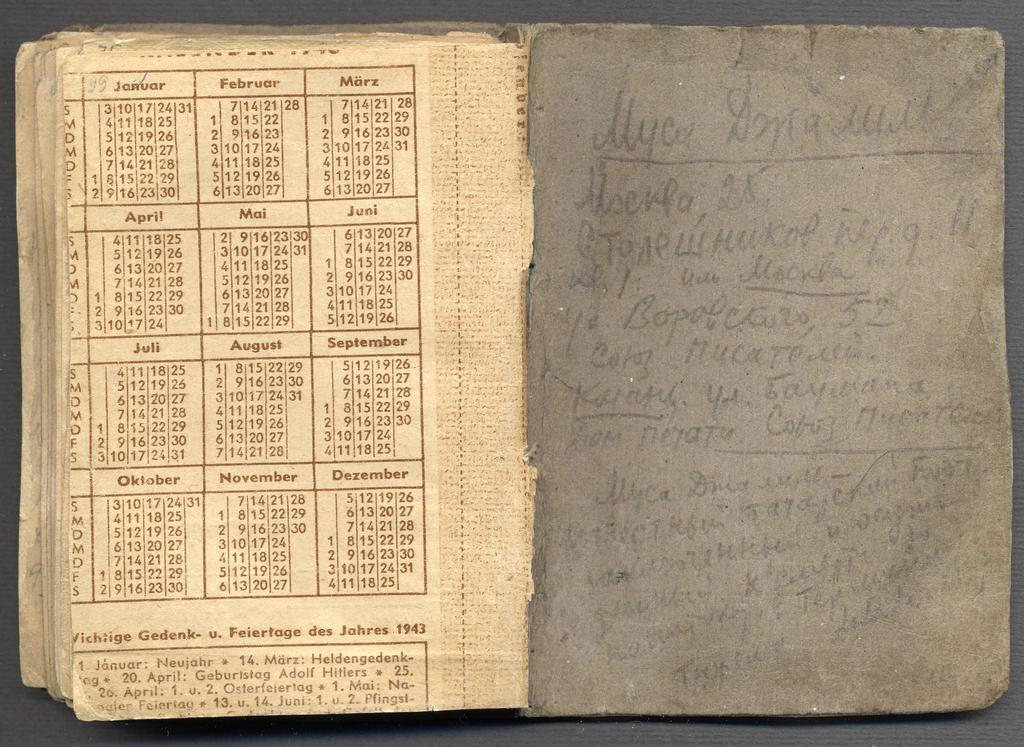 KALENDER 1943
Januar Februar März
S 3 10 17 24 31 7 14 21 28 7 14 21 28
M 4 11 18 25 1 8 15 22 1 8 15 22 29
D 5 12 19 26 2 9 16 23 2 9 16 23 30
M 6 13 20 27 3 10 17 24 3 10 17 24 31
D 7 14 21 28 4 11 18 25 4 11 18 25
F 1 8 15 22 29 5 12 19 26 5 12 19 26
S 2 9 16 23 30 6 13 20 27 6 13 20 27
April Mai Juni
S 4 11 18 25 2 9 16 23 30 6 13 20 27
M 5 12 19 26 3 10 17 24 31 7 14 21 28
D 6 13 20 27 4 11 18 25 1 8 15 22 29
M 7 14 21 28 5 12 19 26 2 9 16 23 30
D 1 8 15 22 29 6 13 20 27 3 10 17 24
F 2 9 16 23 30 7 14 21 28 4 11 18 25
S 3 10 17 24 1 8 15 22 29 5 12 19 26
Juli August September
S 4 11 18 25 1 8 15 22 29 5 12 19 26
M 5 12 19 26 2 9 16 23 30 6 13 20 27
D 6 13 20 27 3 10 17 24 31 7 14 21 28
M 7 14 21 28 4 11 18 25 1 8 15 22 29
D 1 8 15 22 29 5 12 19 26 2 9 16 23 30
F 2 9 16 23 30 6 13 20 27 3 10 17 24
S 3 10 17 24 31 7 14 21 28 4 11 18 25
Oktober November Dezember
S 3 10 17 24 31 7 14 21 28 5 12 19 26
M 4 11 18 25 1 8 15 22 29 6 13 20 27
D 5 12 19 26 2 9 16 23 30 7 14 21 28
M 6 13 20 27 3 10 17 24 1 8 15 22 29
D 7 14 21 28 4 11 18 25 2 9 16 23 30
F 1 8 15 22 29 5 12 19 26 3 10 17 24 31
S 2 9 16 23 30 6 13 20 27 4 11 18 25
Wichtige Gedenk- u. Feiertage des Jahres 1943
1. Januar: Neujahr * 14. März: Heldengedenk-
tag * 20. April: Geburtstag Adolf Hitlers * 25.
26. April: 1. u. 2. Osterfeiertag * 1. Mai: Na-
naler Feiertag * 13. u. 14. Juni: 1. u. 2. Pfingst-
Муса Джалиль
Москва, 25,
Столешников пер. д. 11
кв 1. или Москва
ул. Воровского, 52
Союз Писателей.
Казань. ул. Баумана
Дом печати Союз Писател
Муса Джалиль —
известный татарский
заключенный